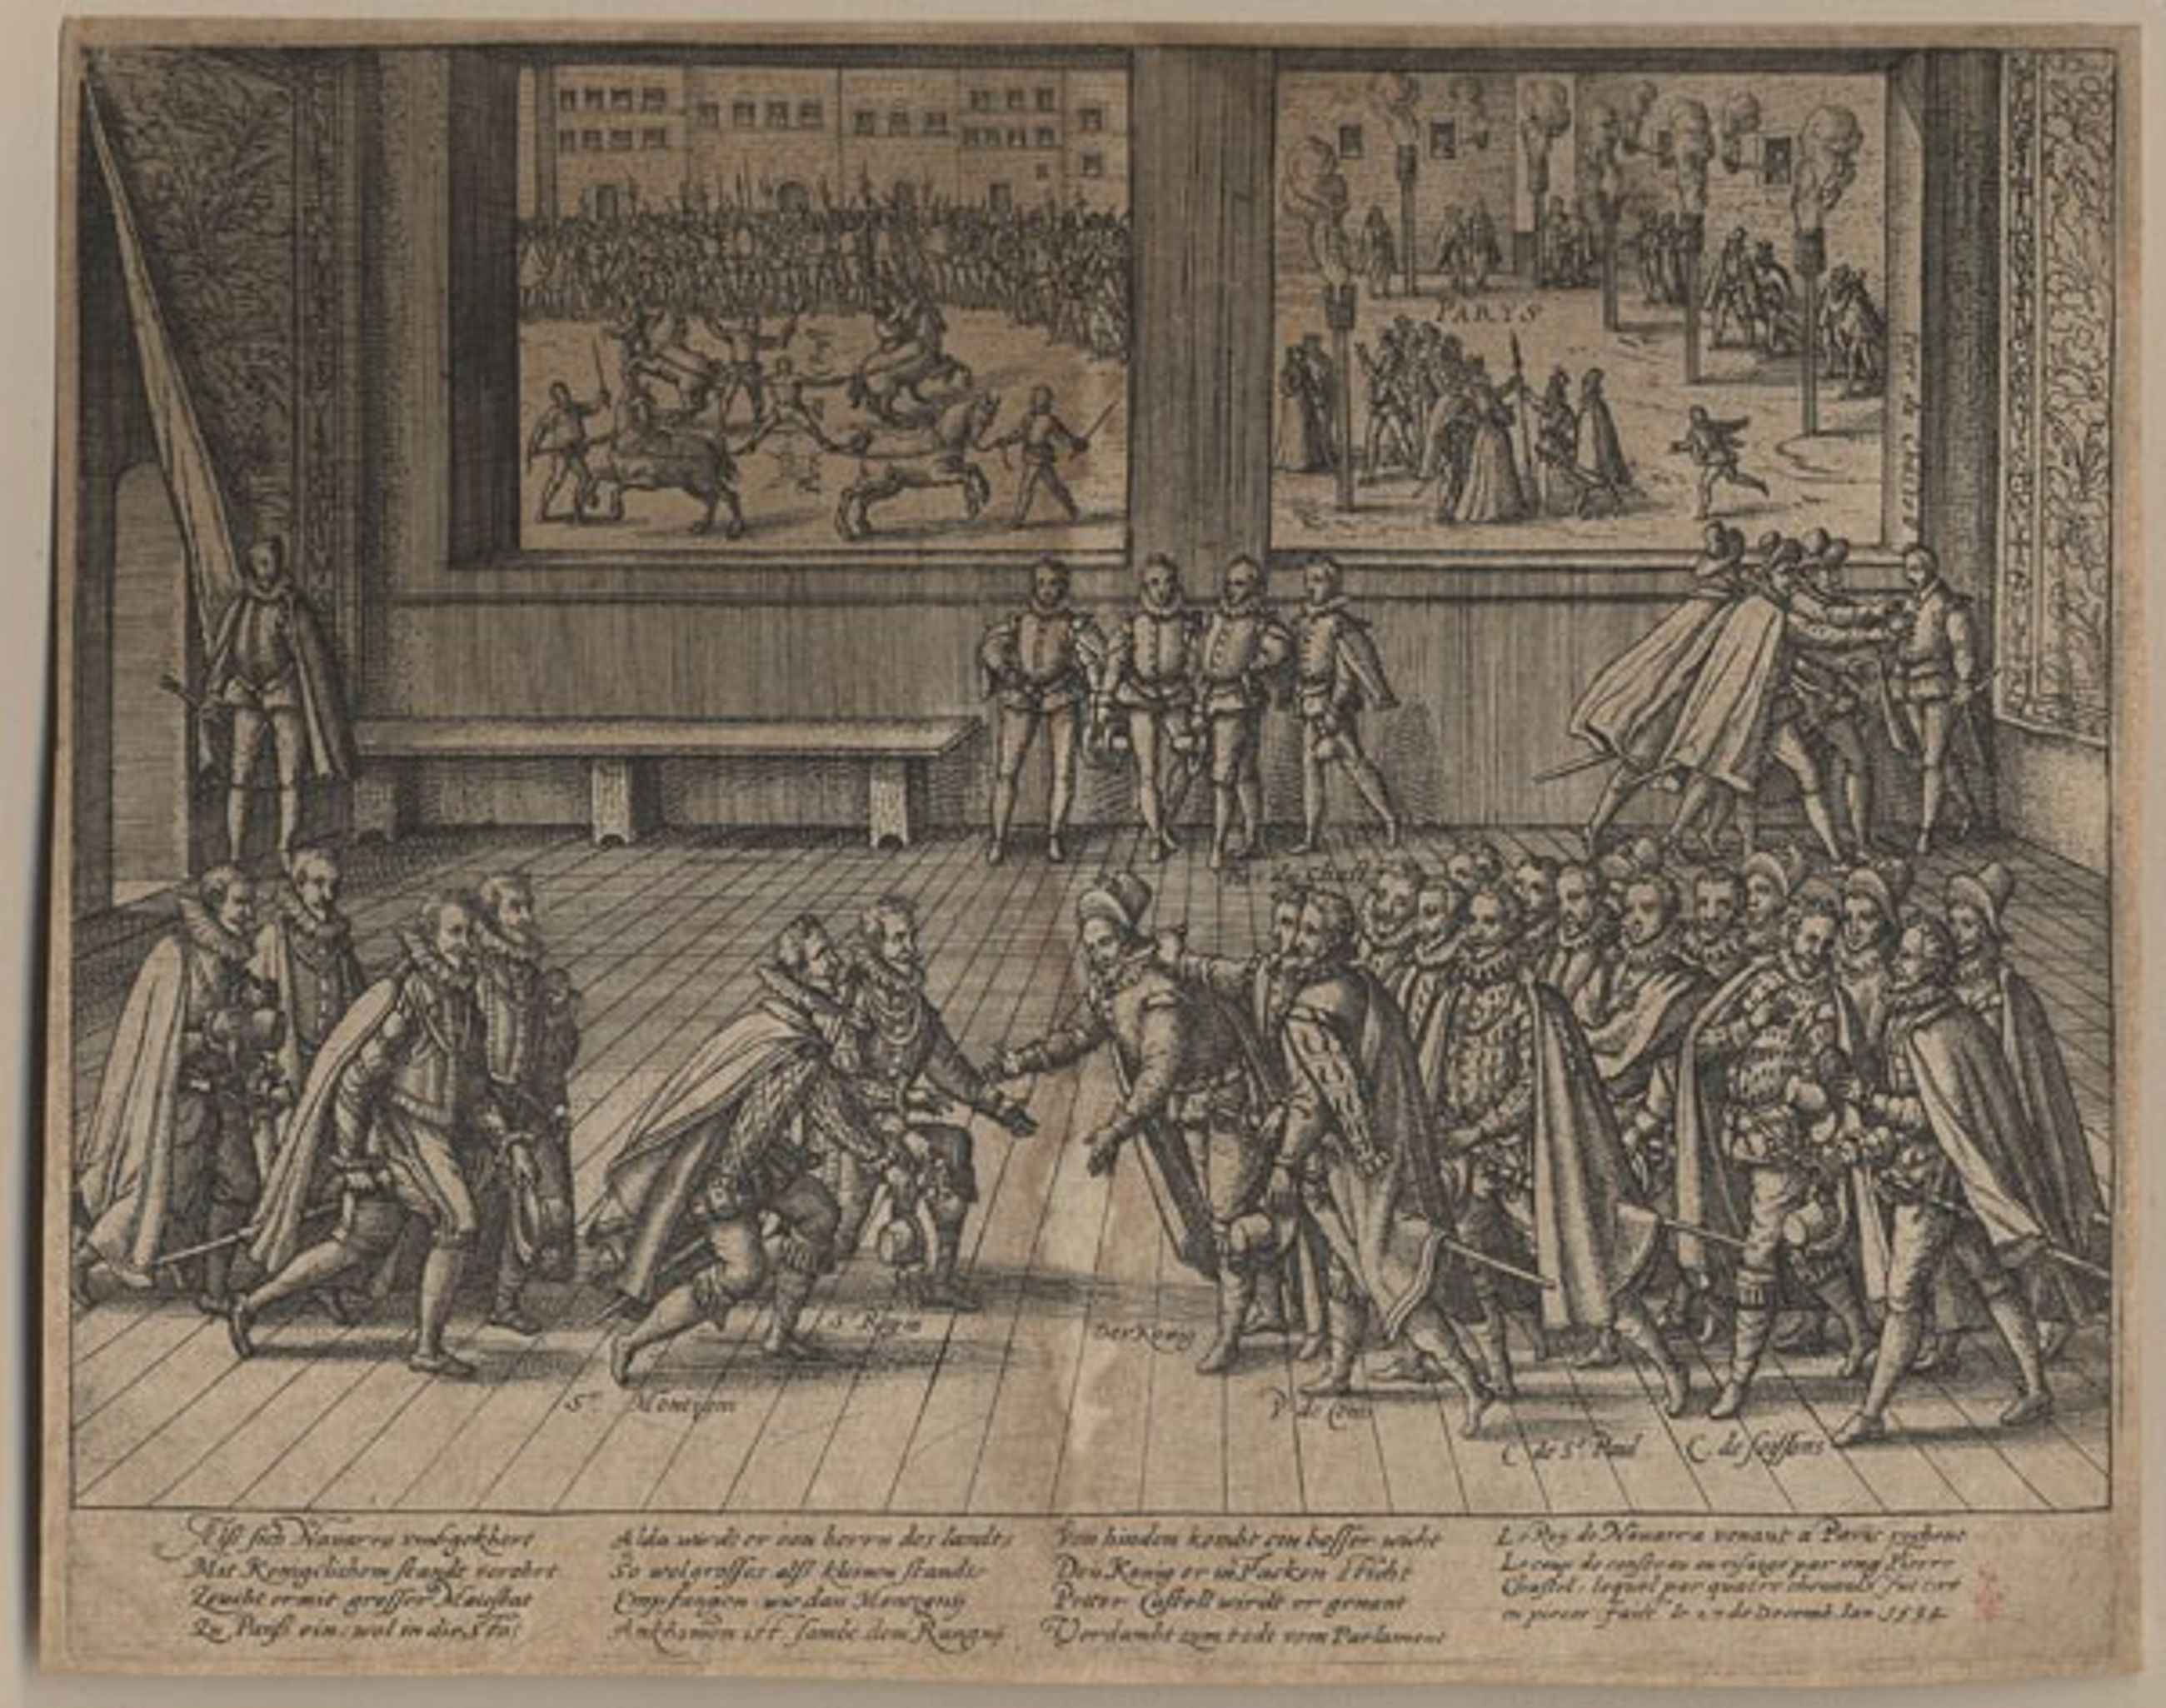 PARYS
Pier du Chastel
S. Rigni
Der Konig
Sr. Montigni
P. de Conti
C de St Paul
C. de Soyssons
Alß sich Navarra umbgekhert
Mit Koniglichem standt verehrt
Zeucht er mit grosser Maiestat
Zu Pariß ein, wol in die Stat
Alda wirdt er von herrn des landts
So wol grosses alß kleinen standts
Empfangen wie dan Montigny
Ankhomen ist sambt dem Ragny
Von hinden kombt ein bosser wicht
Den Konig er in Backen sticht
Petter Castell wirdt er genant
Verdambt zum todt vom Parlament
Le Roy de Navarra venant a Paris recheut
Le coup de cousteau en visaige par ung Pierre
Chastel, lequel par quatre chevaulx fut tiré
en pieces faict le 27 de Decemb. lan 1594